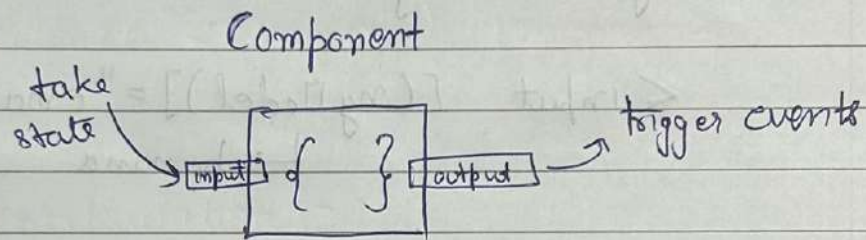 Component
take
state
input { } output
trigger events